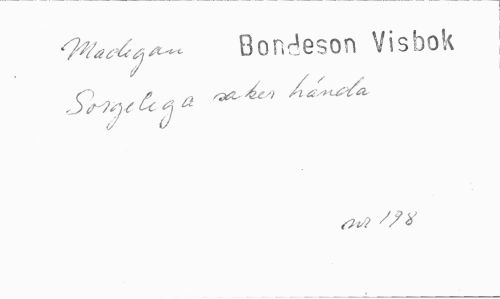 Madigan Bondeson Visbok
Sorgelega saker hända
nr 198